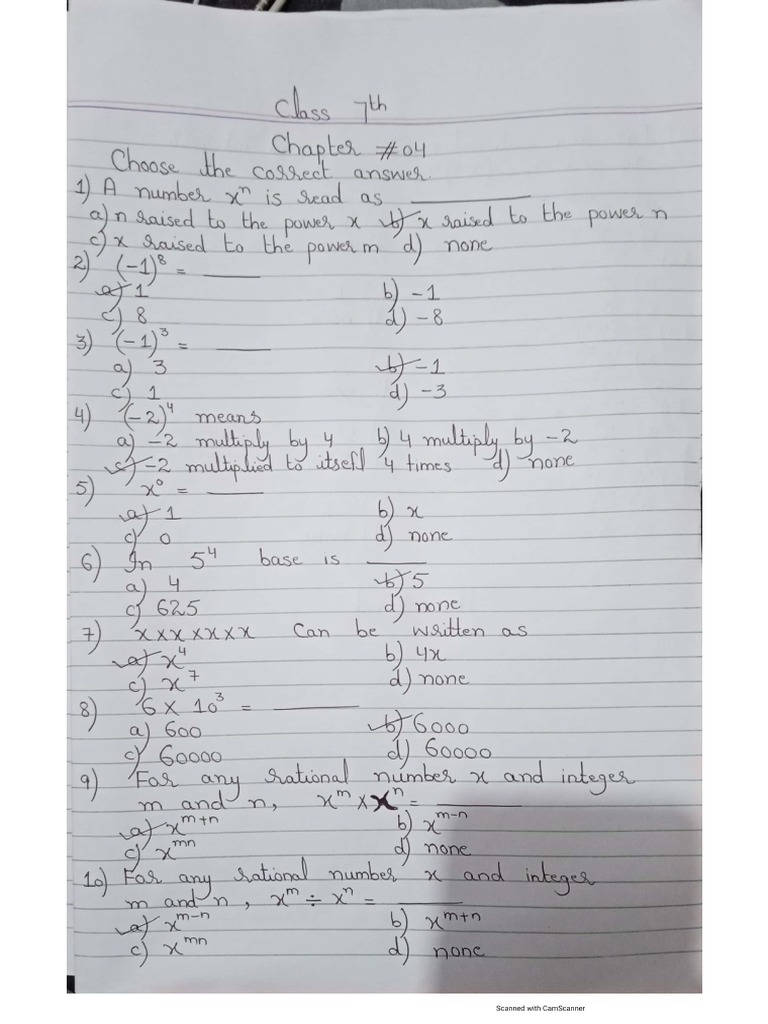 Class 7th
Chapter #04
Choose the correct answer.
1) A number xⁿ is read as ________
a) n raised to the power x b) x raised to the power n
c) x raised to the power m d) none
2) (-1)⁸ = ____
a) 1 b) -1
c) 8 d) -8
3) (-1)³ = ____
a) 3 b) -1
c) 1 d) -3
4) (-2)⁴ means
a) -2 multiply by 4 b) 4 multiply by -2
c) -2 multiplied to itself 4 times d) none
5) x⁰ = ____
a) 1 b) x
c) 0 d) none
6) In 5⁴ base is ____
a) 4 b) 5
c) 625 d) none
7) x×x×x×x can be written as
a) x⁴ b) 4x
c) x⁷ d) none
8) 6 × 10³ = ______
a) 600 b) 6000
c) 60000 d) 60000
9) For any rational number x and integer
m and n, xᵐ × xⁿ = ______
a) xᵐ⁺ⁿ b) xᵐ⁻ⁿ
c) xᵐⁿ d) none
10) For any rational number x and integer
m and n, xᵐ ÷ xⁿ = ______
a) xᵐ⁻ⁿ b) xᵐ⁺ⁿ
c) xᵐⁿ d) none
Scanned with CamScanner